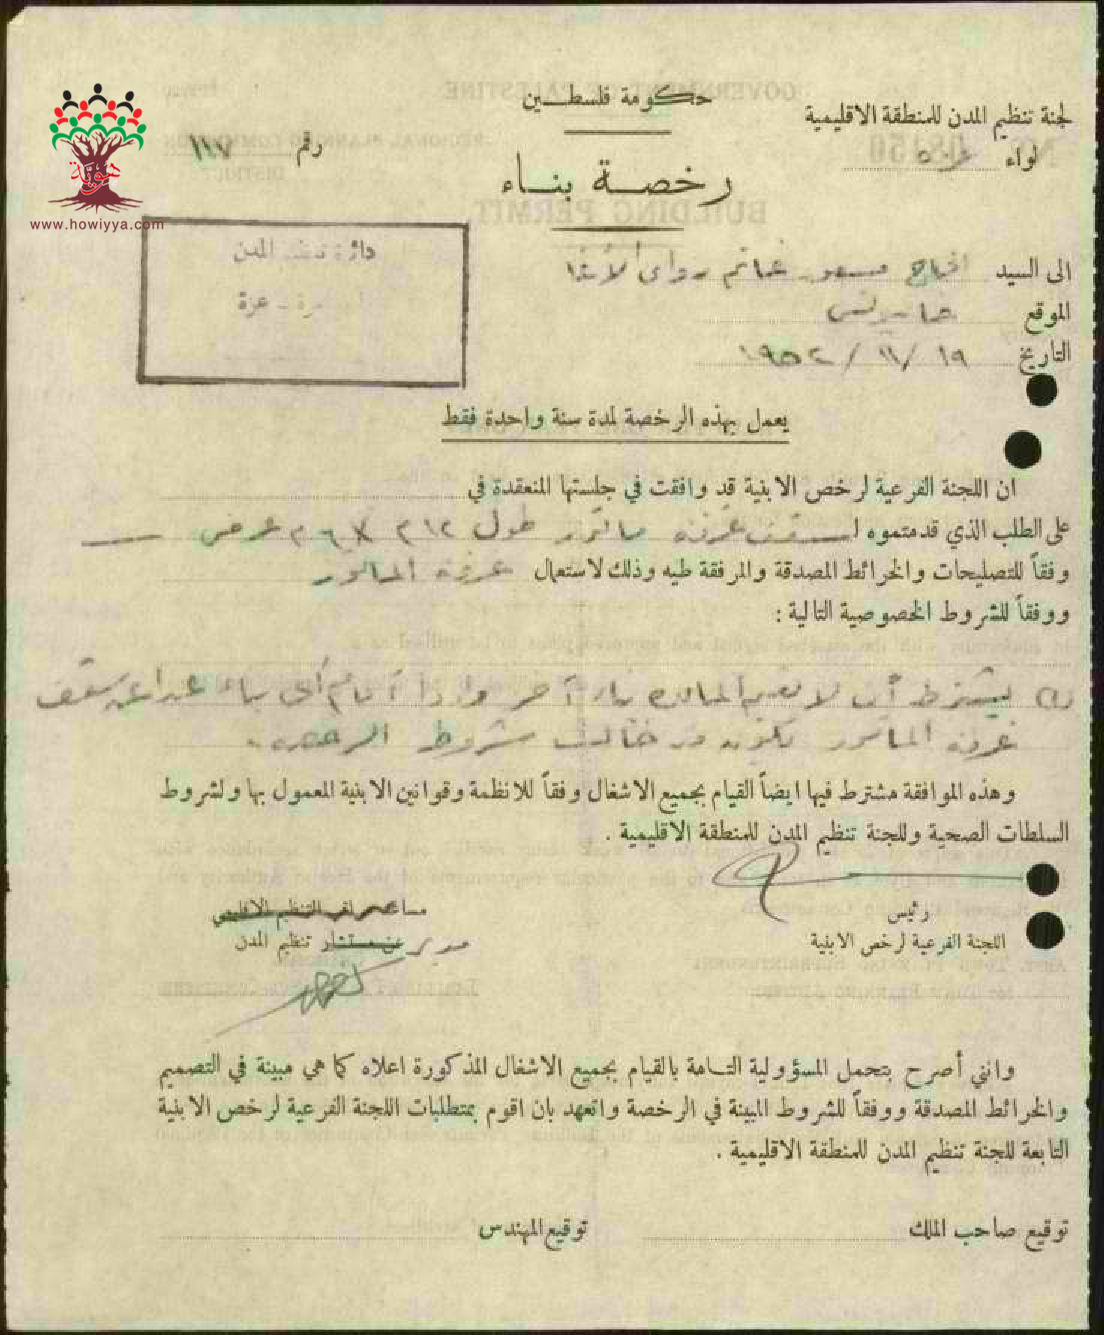 حكومة فلسطين
لجنة تنظيم المدن للمنطقة الاقليمية
لواء غزة
رقم ١١٧
هوية
www.howiyya.com
رخصة بناء
دائرة تنظيم المدن
غزة
الى السيد الحاج مسعود غانم
الموقع خانيونس
التاريخ ١٩ / ١١ / ١٩٥٢
يعمل بهذه الرخصة لمدة سنة واحدة فقط
ان اللجنة الفرعية لرخص الابنية قد وافقت في جلستها المنعقدة في
على الطلب الذي قدمتموه لسقف غرفة ماتور طول ١٢م × ٦م عرض
وفقاً للتصليحات والخرائط المصدقة والمرفقة طيه وذلك لاستعمال غرفة الماتور
ووفقاً للشروط الخصوصية التالية :
يشترط أن لا آخر واذا أقام أي بناء عدا عن سقف
غرفة الماتور يكون قد خالف شروط الرخصة .
وهذه الموافقة مشترط فيها ايضاً القيام بجميع الاشغال وفقاً للانظمة وقوانين الابنية المعمول بها ولشروط
السلطات الصحية وللجنة تنظيم المدن للمنطقة الاقليمية .
رئيس
اللجنة الفرعية لرخص الابنية
مساعد مراقب التنظيم الاقليمي
مدير عن مستشار تنظيم المدن
وانني أصرح بتحمل المسؤولية التامة بالقيام بجميع الاشغال المذكورة اعلاه كما هي مبينة في التصميم
والخرائط المصدقة ووفقاً للشروط المبينة في الرخصة واتعهد بان اقوم بمتطلبات اللجنة الفرعية لرخص الابنية
التابعة للجنة تنظيم المدن للمنطقة الاقليمية .
توقيع صاحب الملك
توقيع المهندس